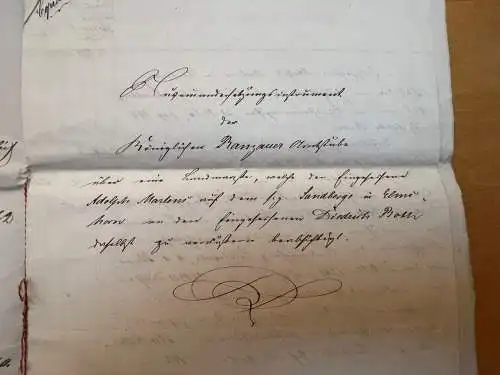 Auseinandersetzungsinstrument
der
Königlichen Ranzauer Amtstube
über eine Landmaaße, welche der Eingesessene
Adolph Martens auf dem s. g. Sandberge in Elms-
horn an den Eingesessenen Diederich Bolt
daselbst zu veräußern beabsichtigt.